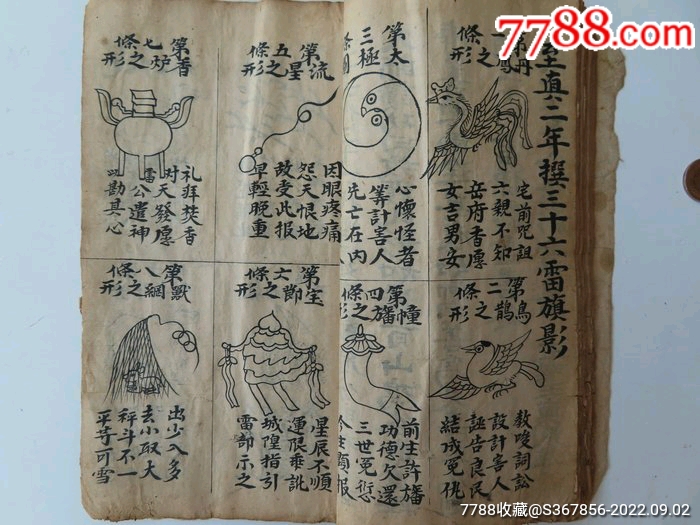 7788.com
至真二年撰三十六雷旗影
鳳之
條形
宅前咒詛
六親不知
岳府香愿
女吉男安
第二條
鳥鵲之形
教唆詞訟
設計害人
誣告良民
結成冤仇
第三條
太極
心懷怪者
等計害人
先亡在内
第四條
幢旛之形
前生許旛
功德欠還
三世冤愆
第五條
流星之形
因眼疼痛
怨天恨地
故受此报
早輕晚重
第六條
宝節之形
星辰不順
運限乖訛
城隍指引
雷部示之
第七條
香炉之形
礼拜焚香
对天發愿
雷公遣神
以勘其心
第八條
獸網之形
出少入多
去小取大
秤斗不一
平等可雪
7788收藏@S367856-2022.09.02